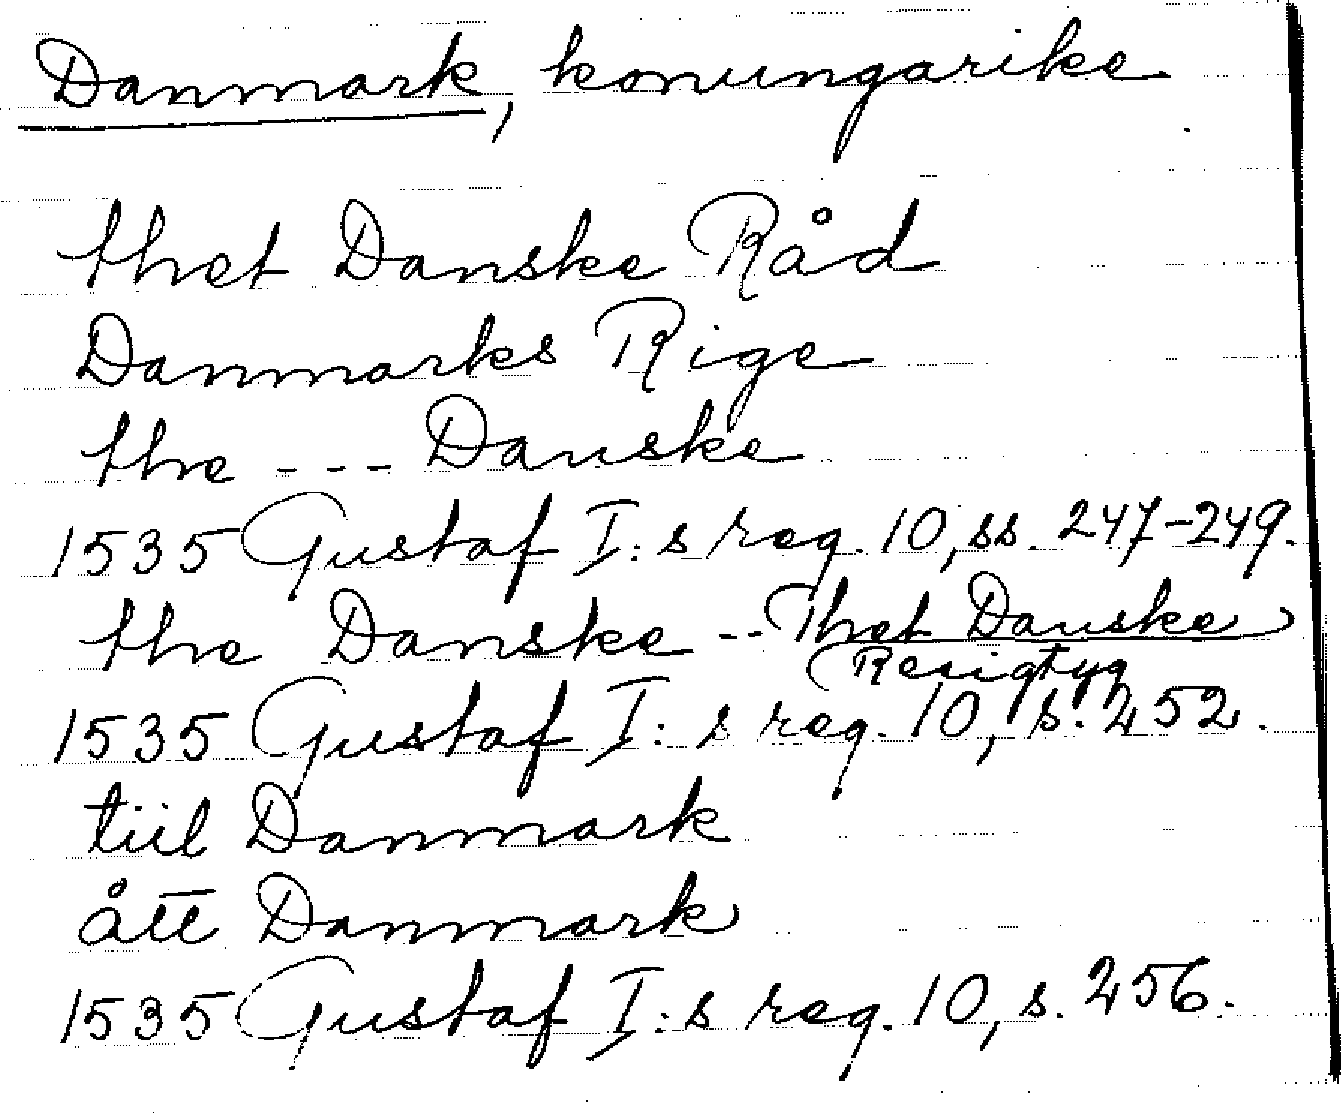 Danmark, konungarike
thet Danske Råd
Danmarks Rige
the --- Danske
1535 Gustaf I:s reg. 10, ss. 247-249.
the Danske -- Thet Danske
1535 Gustaf I:s reg. 10, s. 252.
tiil Danmark
ått Danmark
1535 Gustaf I:s reg. 10, s. 256.